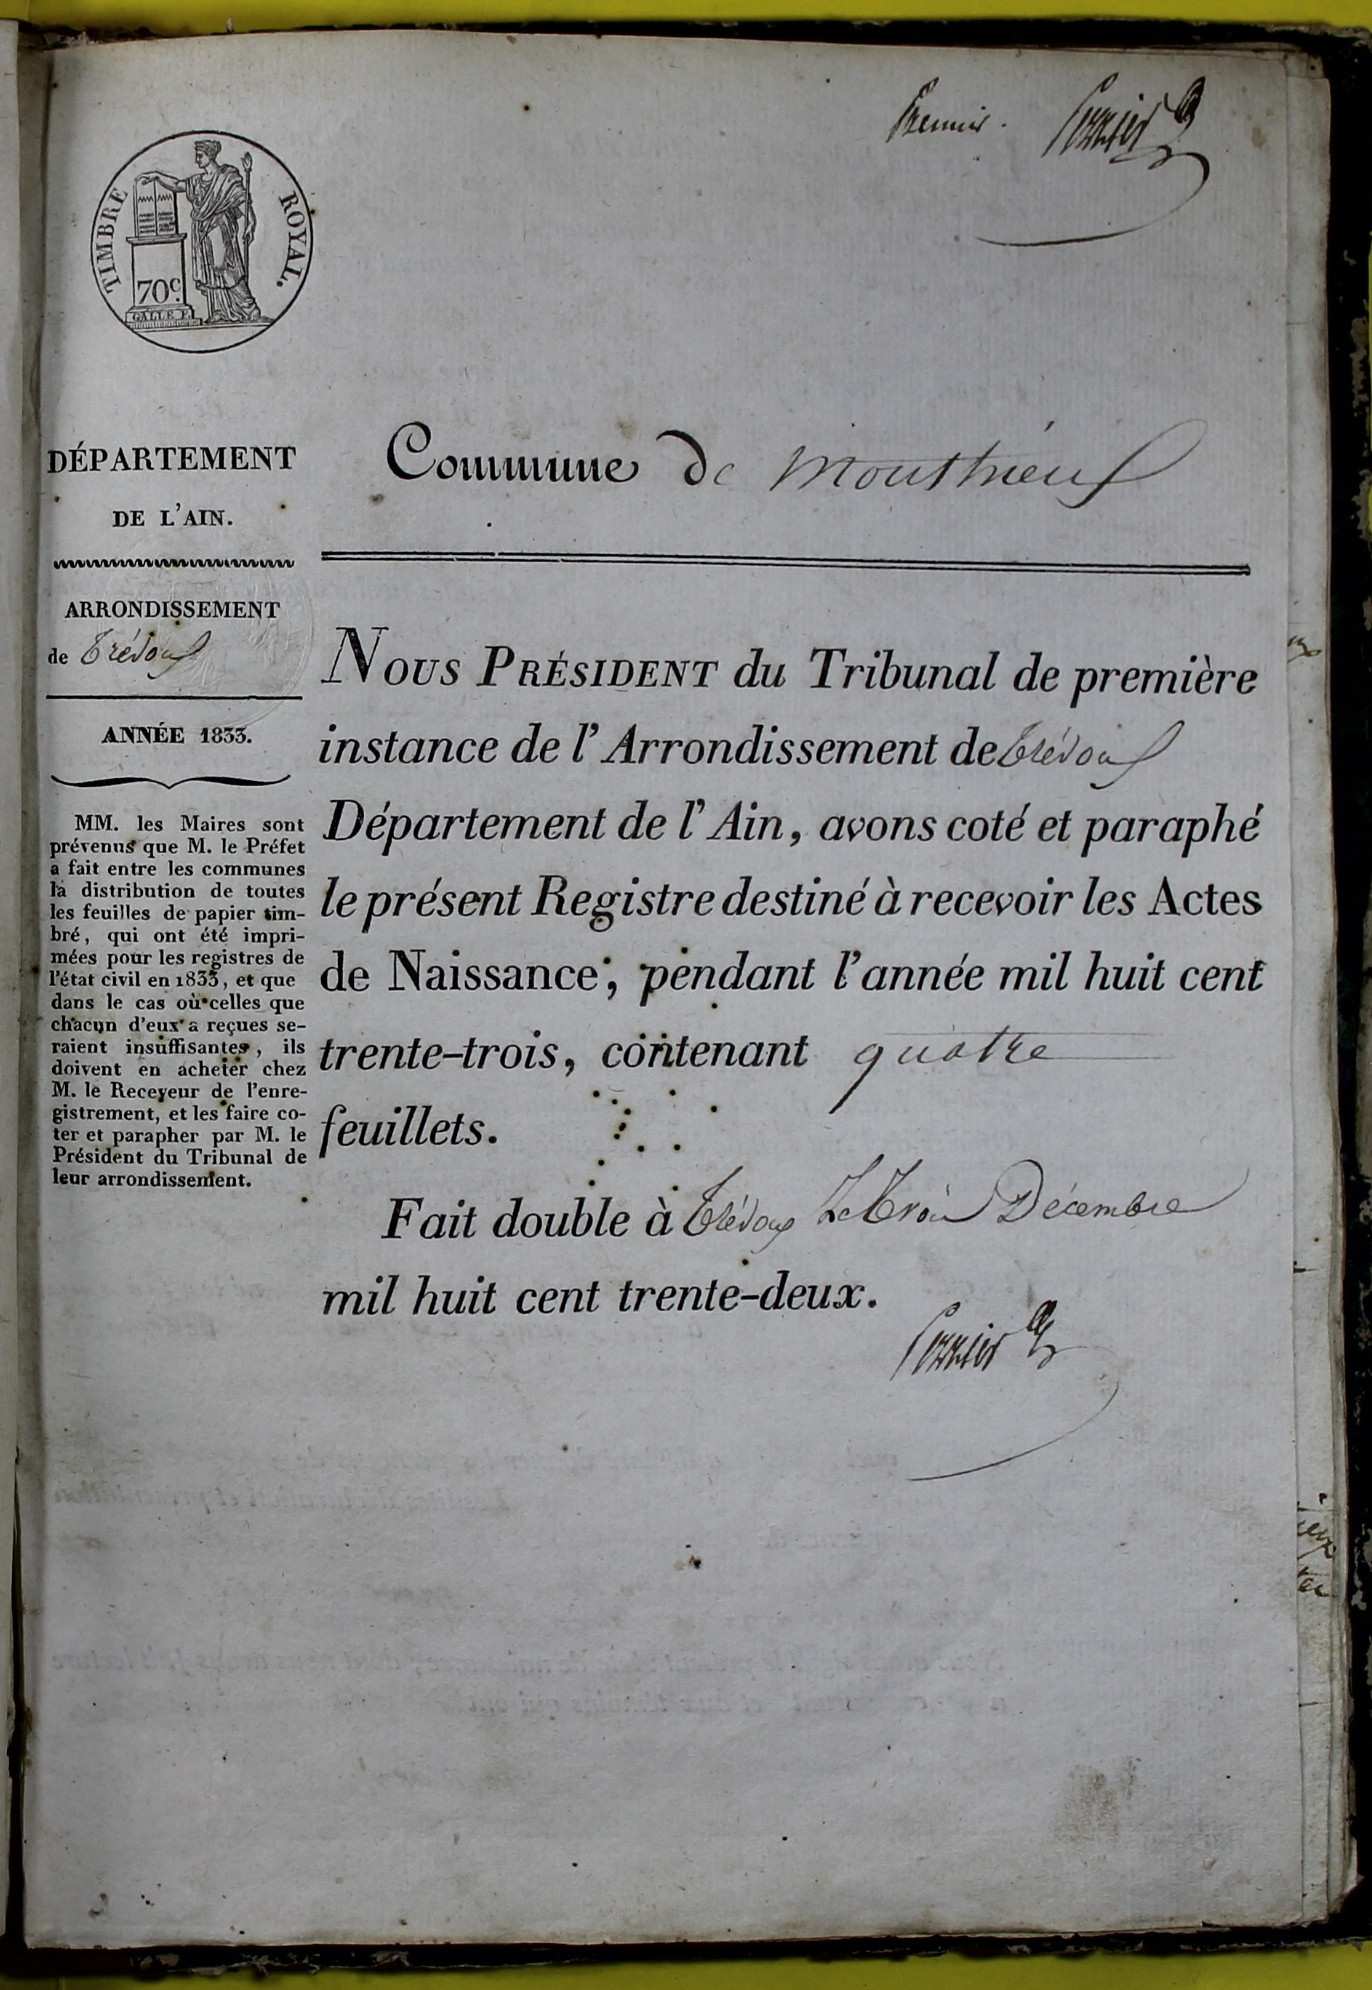 Premier. Perrier
TIMBRE ROYAL.
70c.
GALLE F.
DÉPARTEMENT
DE L'AIN.
ARRONDISSEMENT
de Trévoux
ANNÉE 1833.
MM. les Maires sont
prévenus que M. le Préfet
a fait entre les communes
la distribution de toutes
les feuilles de papier tim-
bré, qui ont été impri-
mées pour les registres de
l'état civil en 1833, et que
dans le cas où celles que
chacun d'eux a reçues se-
raient insuffisantes, ils
doivent en acheter chez
M. le Receveur de l'enre-
gistrement, et les faire co-
ter et parapher par M. le
Président du Tribunal de
leur arrondissement.
Commune de Monthieux
NOUS PRÉSIDENT du Tribunal de première
instance de l'Arrondissement de Trévoux
Département de l'Ain, avons coté et paraphé
le présent Registre destiné à recevoir les Actes
de Naissance, pendant l'année mil huit cent
trente-trois, contenant quatre
feuillets.
Fait double à Trévoux Le Trois Décembre
mil huit cent trente-deux.
Perrier